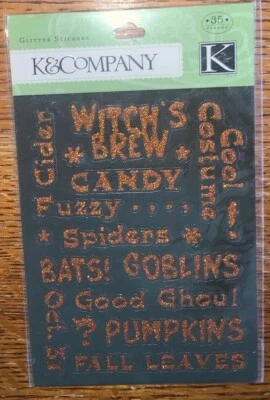 GLITTER STICKERS
35
K&COMPANY
K
WITCH'S
BREW
Cider
Cool
Costume
CANDY
Fuzzy
!
Spiders
BATS! GOBLINS
Oct. 31
Good Ghoul
? PUMPKINS
FALL LEAVES